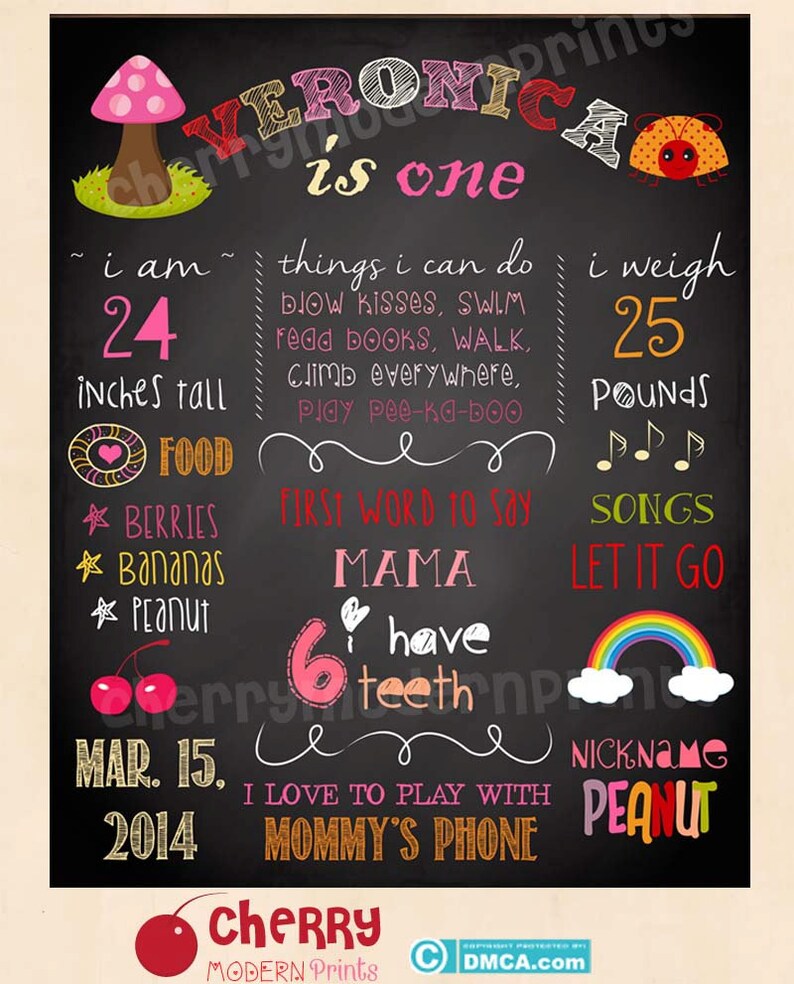 VERONICA
is one
~ i am ~
24
inches tall
things i can do
blow kisses, swim
read books, walk,
climb everywhere,
play pee-ka-boo
i weigh
25
pounds
FOOD
BERRIES
BANANAS
PEANUT
FIRST WORD TO SAY
MAMA
6 i have
teeth
SONGS
LET IT GO
MAR. 15,
2014
I LOVE TO PLAY WITH
MOMMY'S PHONE
NICKNAME
PEANUT
cherrymodernprints
cherrymodernprints
Cherry
MODERN Prints
C
COPYRIGHT PROTECTED BY:
DMCA.com